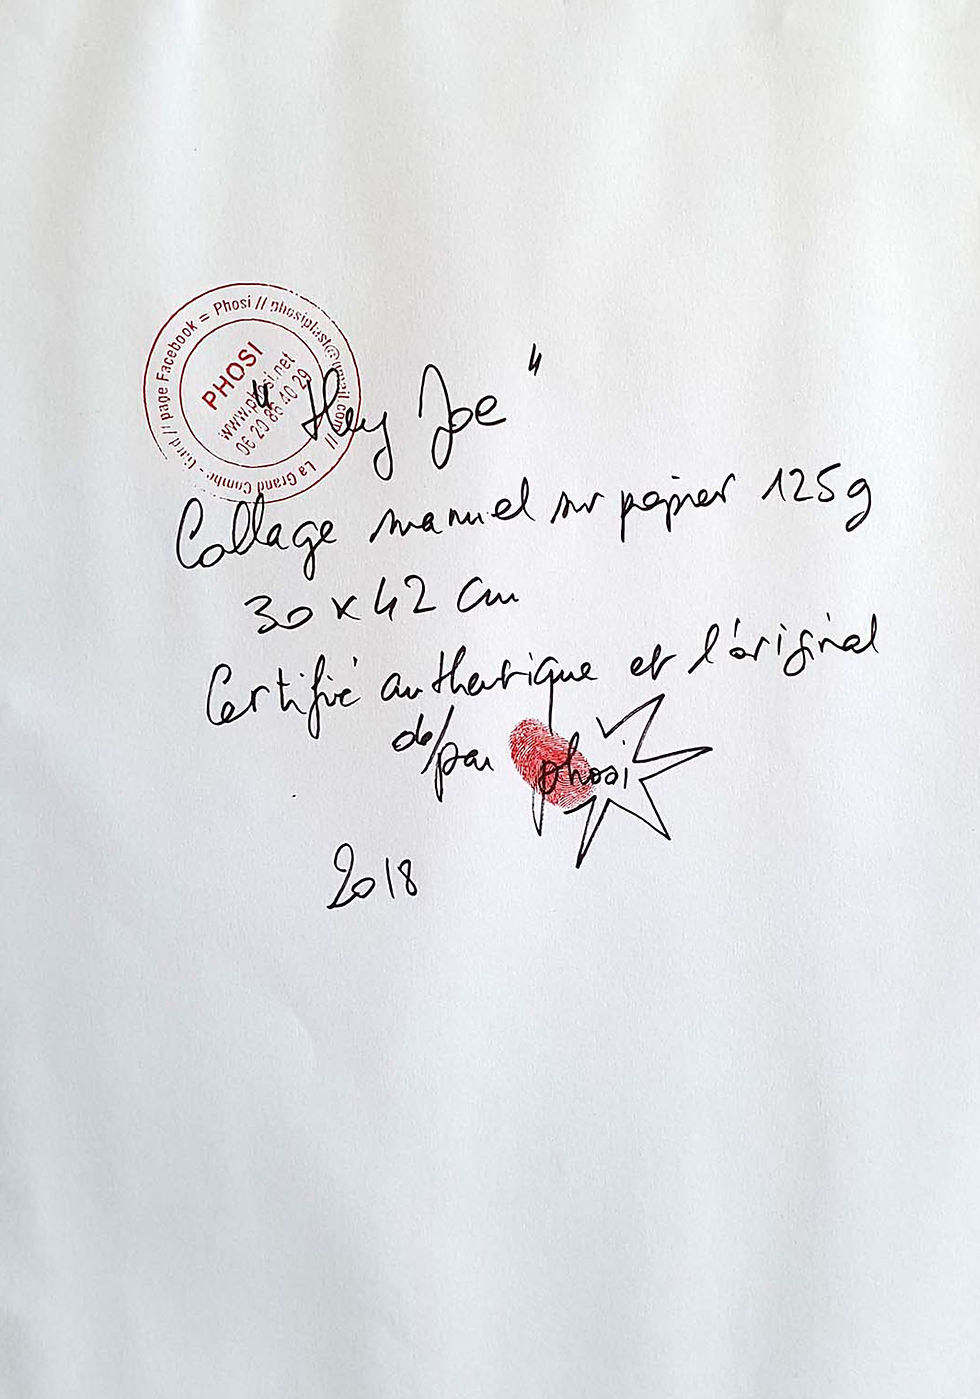 page Facebook = Phosi // phosiplast@gmail.com // La Grand Combe - Gard //
PHOSI
www.phosi.net
06 20 86 40 29
"Hey Joe"
Collage manuel sur papier 125g
30 x 42 cm
Certifié authentique et l'original
de/par phosi
2018